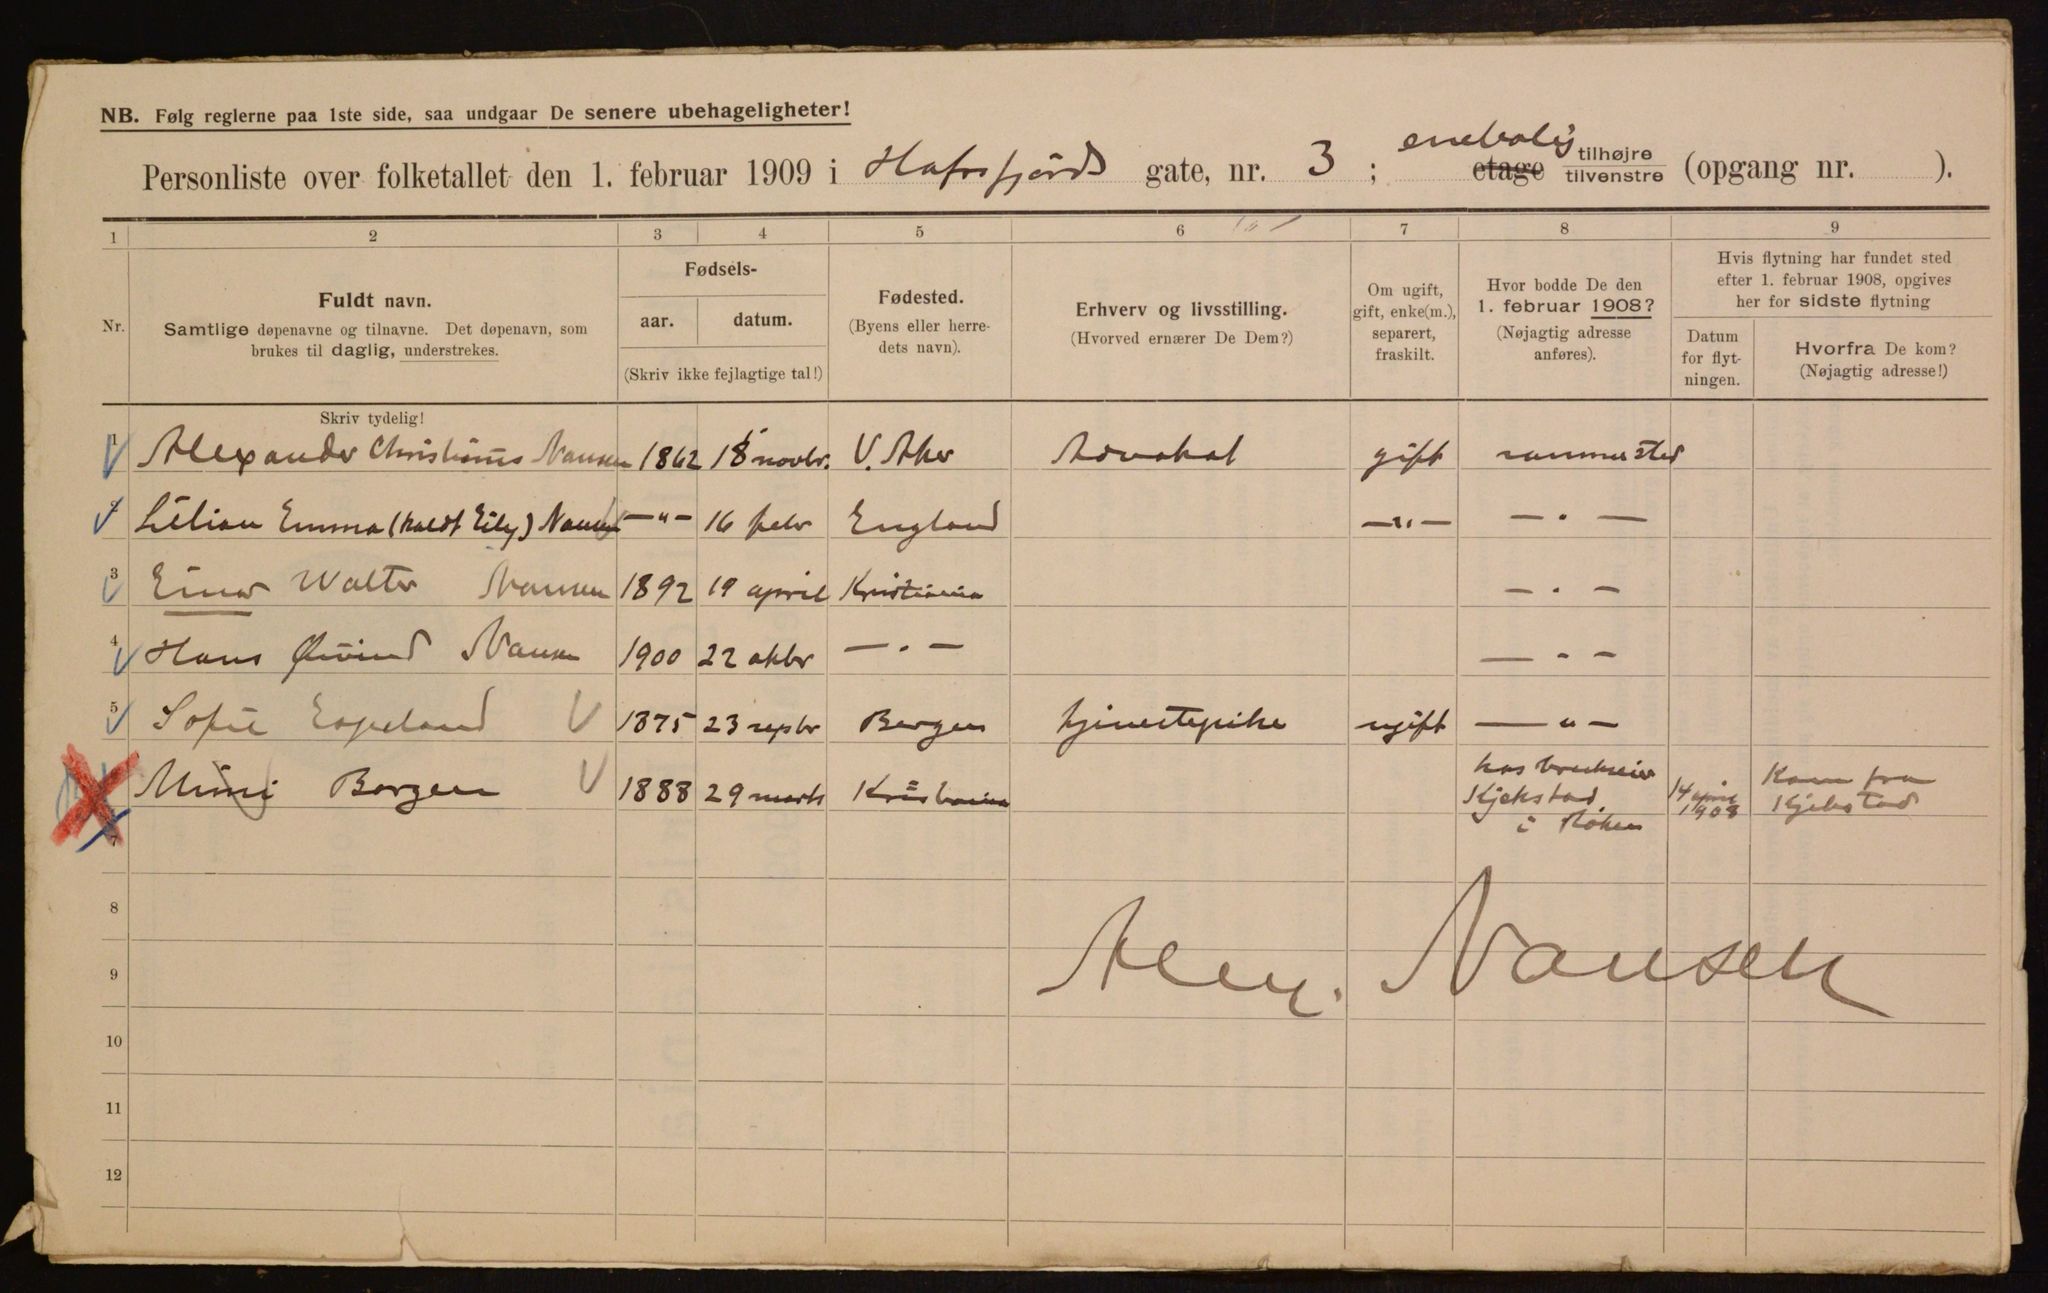 NB. Følg reglerne paa 1ste side, saa undgaar De senere ubehageligheter!
Personliste over folketallet den 1. februar 1909 i Hafrsfjords gate, nr. 3 ; enebolig etage tilhøjre tilvenstre (opgang nr. ).
1 2 3 4 5 6 7 8 9
Nr.
Fuldt navn.
Samtlige døpenavne og tilnavne. Det døpenavn, som
brukes til daglig, understrekes.
Fødsels-
aar. datum.
(Skriv ikke fejlagtige tal!)
Fødested.
(Byens eller herre-
dets navn).
Erhverv og livsstilling.
(Hvorved ernærer De Dem?)
Om ugift,
gift, enke(m.),
separert,
fraskilt.
Hvor bodde De den
1. februar 1908?
(Nøjagtig adresse
anføres).
Hvis flytning har fundet sted
efter 1. februar 1908, opgives
her for sidste flytning
Datum
for flyt-
ningen.
Hvorfra De kom?
(Nøjagtig adresse!)
Skriv tydelig!
1 Alexander Christians Nansen 1862 18 novbr. V. Aker Advokat gift sammested
2 Lilian Emma (kaldt Eily) Nansen —"— 16 febr England —"— — " —
3 Einar Walter Nansen 1892 19 april Kristiania — " —
4 Hans Øivind Nansen 1900 22 oktbr — " — — " —
5 Sofie Espeland 1875 23 septbr Bergen tjenestepike ugift — " —
Mimi Borgen 1888 29 marts Kristiania hos brukseier Kjekstad i Røken 14 april 1908 Kom fra Kjekstad
7
8
9
Alex. Nansen
10
11
12